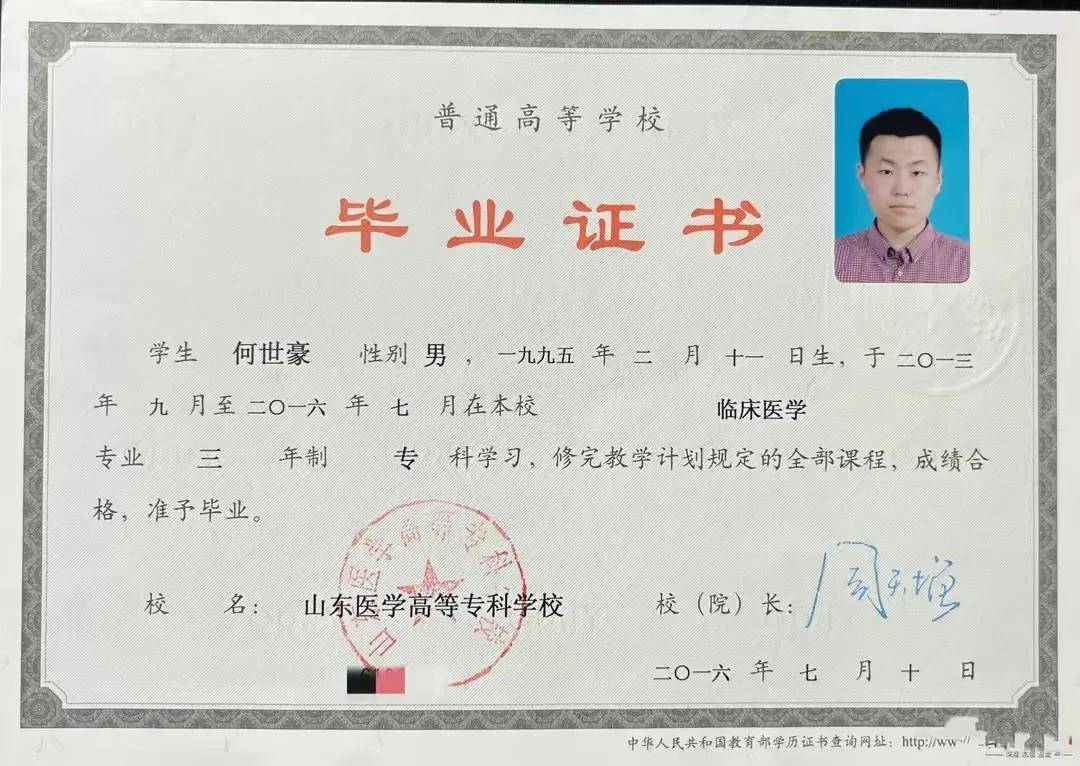 普通高等学校
毕业证书
学生 何世豪 性别 男 ，一九九五 年 二 月 十一 日生，于 二〇一三
年 九 月至 二〇一六 年 七 月在本校 临床医学
专业 三 年制 专 科学习，修完教学计划规定的全部课程，成绩合
格，准予毕业。
校 名： 山东医学高等专科学校 校（院）长：周天增
山东医学高等专科学校
二〇一六 年 七 月 十 日
中华人民共和国教育部学历证书查询网址：http://ww